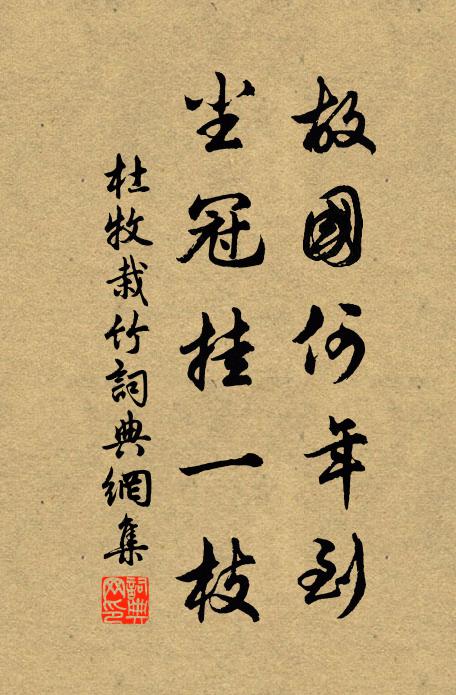 故國何年到
尘冠挂一枝
杜牧栽竹詞典網集
詞典网印